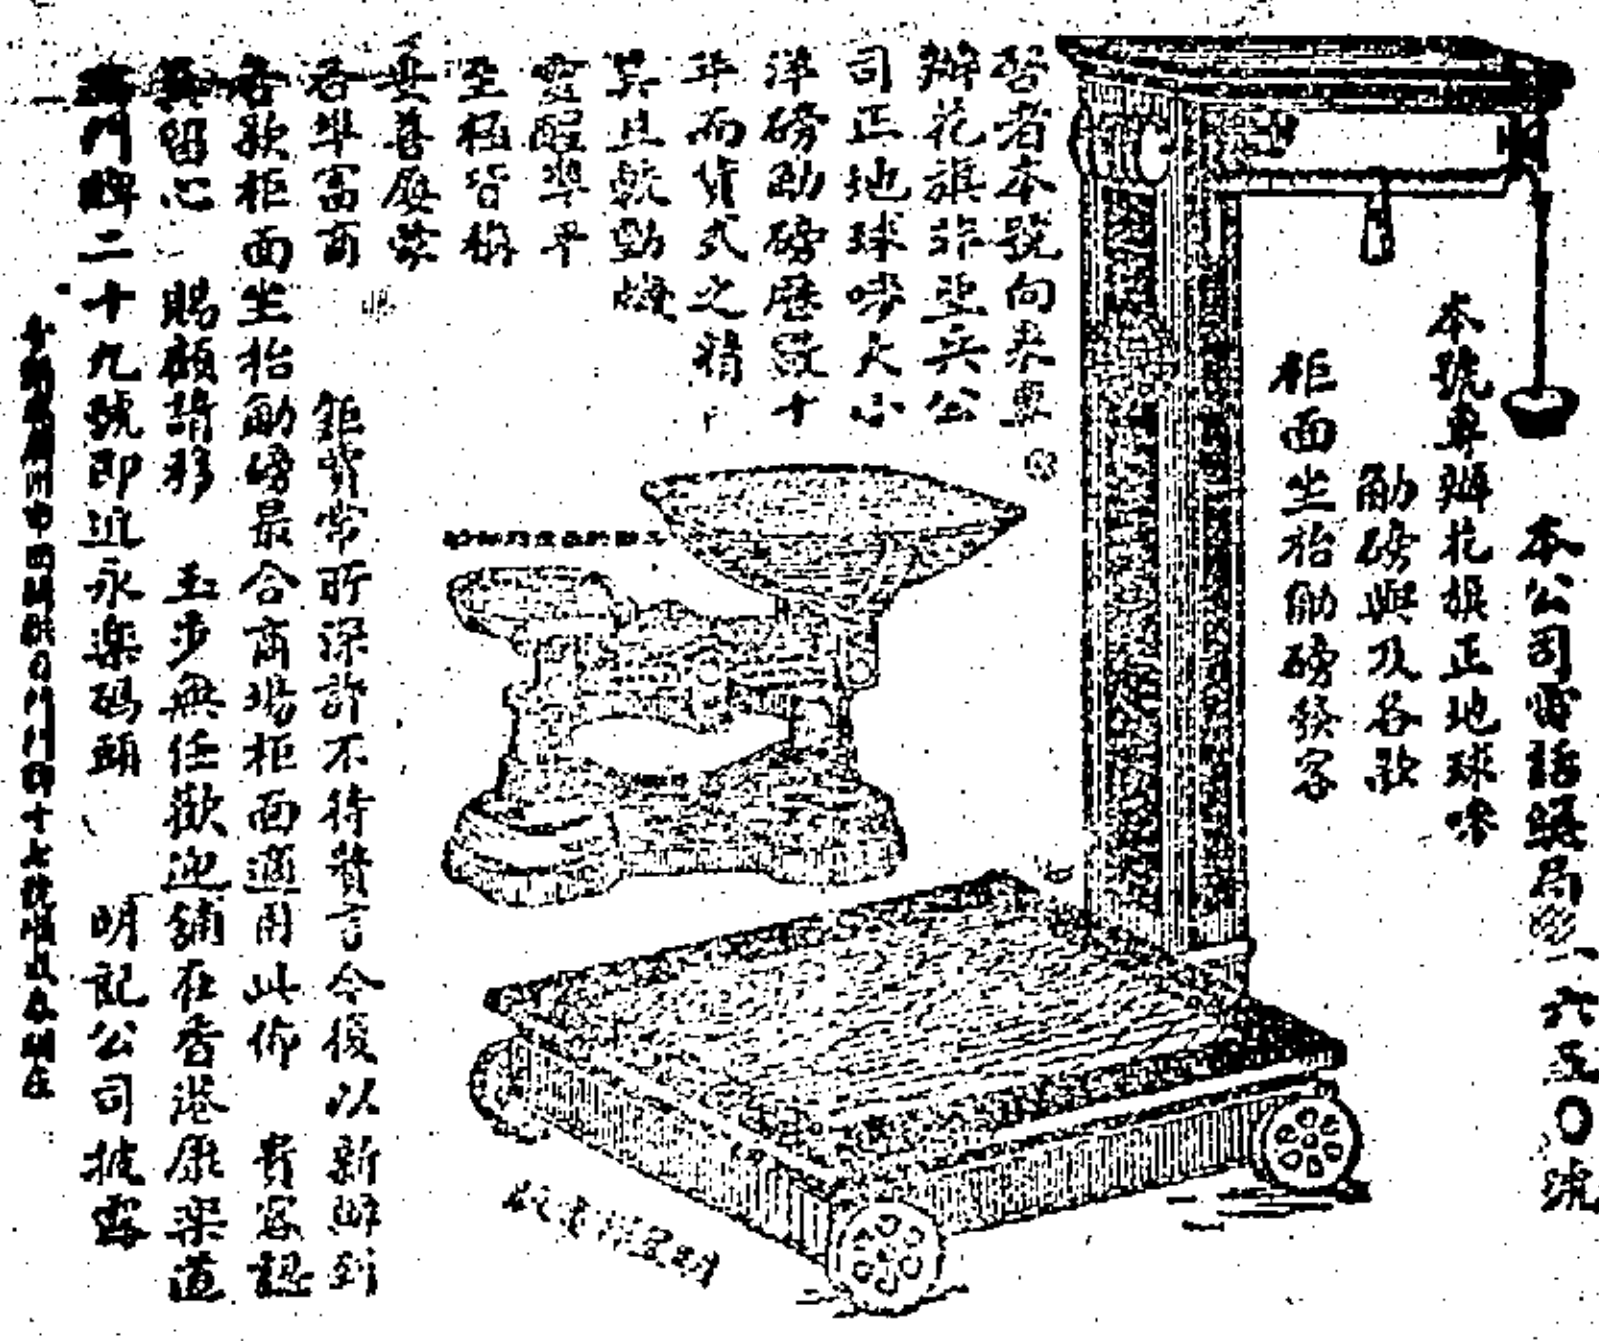 本公司電話總局 一六五〇號
本號專辦花旗正地球嘜
觔磅與及各欵
柜面坐枱觔磅發客
啓者本號向來專
辦花旗非亞兵公
司正地球嘜大小
洋磅觔磅歷數十
年而貨式之精
異且軌動機
靈醒準平
至極皆稱
盡善屢蒙
各埠富商
鉅賈常所深許不待贅言今復以新辦到
各欵柜面坐枱觔磅最合商場柜面適用此佈 貴客認
真留心 賜顧請移 玉步無任歡迎舖在香港康樂道
門牌二十九號即近永樂碼頭 明記公司披露